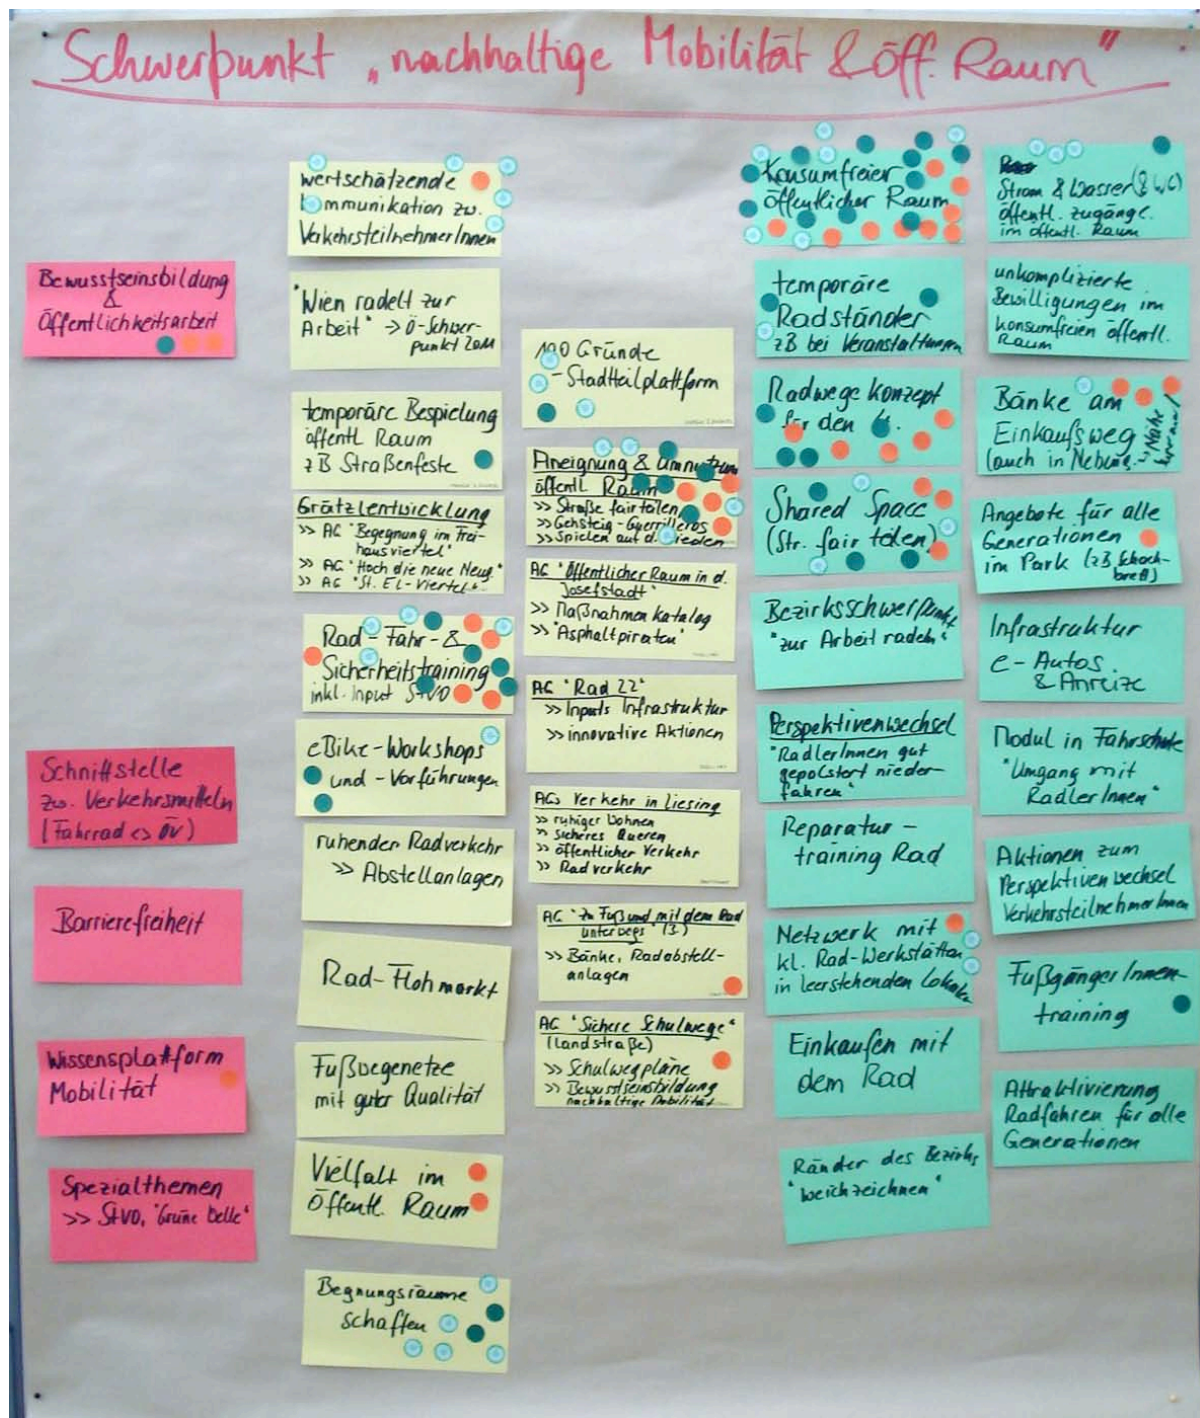 Schwerpunkt „nachhaltige Mobilität & öff. Raum"
Bewusstseinsbildung
&
Öffentlichkeitsarbeit
Schnittstelle
zw. Verkehrsmitteln
(Fahrrad <> ÖV)
Barrierefreiheit
Wissensplattform
Mobilität
Spezialthemen
>> StVO, "Grüne Welle"
wertschätzende
Kommunikation zw.
VerkehrsteilnehmerInnen
"Wien radelt zur
Arbeit" -> Ö-Schwer-
punkt 2011
temporäre Bespielung
öffentl Raum
zB Straßenfeste
Grätzlentwicklung
>> AG "Begegnung im Frei-
hausviertel"
>> AG "Hoch die neue Neug."
>> AG "St. El-Viertel".
Rad-Fahr- &
Sicherheitstraining
inkl. Input StVO
eBike-Workshops
und -Vorführungen
ruhender Radverkehr
>> Abstellanlagen
Rad-Flohmarkt
Fußwegenetze
mit guter Qualität
Vielfalt im
Öffentl. Raum
Begnungsräume
schaffen
100 Gründe
- Stadtteilplattform
Aneignung & Umnutzung
öffentl Raum
>> Straße fair teilen,
>> Gehsteig-Guerrilleros
>> Spielen auf d. Wieden
AG "Öffentlicher Raum in d.
Josefstadt"
>> Maßnahmenkatalog
>> "Asphaltpiraten"
AG "Rad 22"
>> Inputs Infrastruktur
>> innovative Aktionen
AGs Verkehr in Liesing
>> ruhiger Wohnen
>> sicheres Queren
>> öffentlicher Verkehr
>> Radverkehr
AG "Zu Fuß und mit dem Rad
unterwegs" (3.)
>> Bänke, Radabstell-
anlagen
AG "Sichere Schulwege"
(Landstraße)
>> Schulwegpläne
>> Bewusstseinsbildung
nachhaltige Mobilität
Konsumfreier
öffentlicher Raum
temporäre
Radständer
zB bei Veranstaltungen
Radwegekonzept
für den
Shared Space
(Str. fair teilen)
Bezirksschwerpunkt
"zur Arbeit radeln"
Perspektivenwechsel
"RadlerInnen gut
gepolstert nieder-
fahren"
Reparatur-
training Rad
Netzwerk mit
kl. Rad-Werkstätten
in leerstehenden Lokalen
Einkaufen mit
dem Rad
Ränder des Bezirks
"weichzeichnen"
Strom & Wasser (& WC)
öffentl. zugängl.
im öffentl. Raum
unkomplizierte
Bewilligungen im
konsumfreien öffentl.
Raum
Bänke am
Einkaufsweg
(auch in Nebeng.
Angebote für alle
Generationen
im Park (zB Schach-
brett)
Infrastruktur
e-Autos
& Anreize
Modul in Fahrschule
"Umgang mit
RadlerInnen"
Aktionen zum
Perspektivenwechsel
VerkehrsteilnehmerInnen
FußgängerInnen-
training
Attraktivierung
Radfahren für alle
Generationen